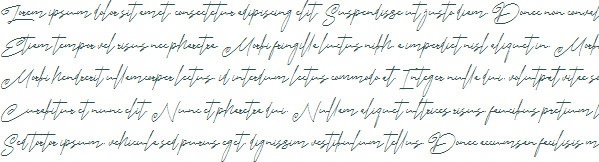 Lorem ipsum dolor sit amet, consectetur adipiscing elit. Suspendisse ut justo diam. Donec non conval
Etiam tempor vel risus nec pharetra. Morbi fringilla luctus nibh, a imperdiet nisl aliquet in. Morb
Morbi hendrerit ullamcorper lectus, id interdum lectus commodo at. Integer nulla dui, volutpat vitae so
Curabitur et nunc elit. Nunc et pharetra dui. Nullam aliquet ultrices risus, faucibus pretium l
Sed tortor ipsum, vehicula sed purus eget, dignissim vestibulum tellus. Donec accumsan facilisis m